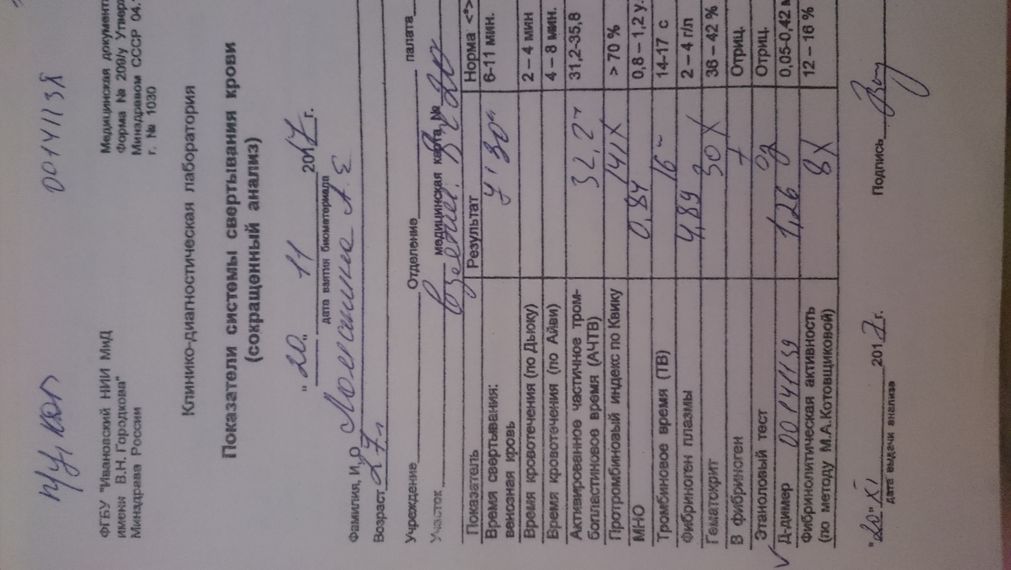 00141138
ФГБУ "Ивановский НИИ МиД
имени В.Н. Городкова"
Минздрава России
Медицинская документ
Форма № 209/у Утвер
Минздравом СССР 04.
г. № 1030
Клинико-диагностическая лаборатория
Показатели системы свертывания крови
(сокращенный анализ)
"20" 11 2017 г.
дата взятия биоматериала
Фамилия, И.О. А. Е
Возраст 27 г.
Учреждение Отделение палата
Участок медицинская карта №
Показатель Результат Норма <*>
Время свертывания: венозная кровь 6-11 мин.
Время кровотечения (по Дьюку) 2 – 4 мин
Время кровотечения (по Айви) 4 – 8 мин.
Активированное частичное тром-
бопластиновое время (АЧТВ) 32,2" 31,2-35,8
Протромбиновый индекс по Квику 141% > 70 %
МНО 0,84 0,8 – 1,2 у.
Тромбиновое время (ТВ) 16" 14-17 с
Фибриноген плазмы 4,89 2 – 4 г/л
Гематокрит 30% 36 – 42 %
В фибриноген + Отриц.
Этаноловый тест Отриц.
Д-димер 00141139 1,26 0,05-0,42 м
Фибринолитическая активность
(по методу М.А.Котовщиковой) 8% 12 – 16 %
"20" XI 2017 г. Подпись
дата выдачи анализа